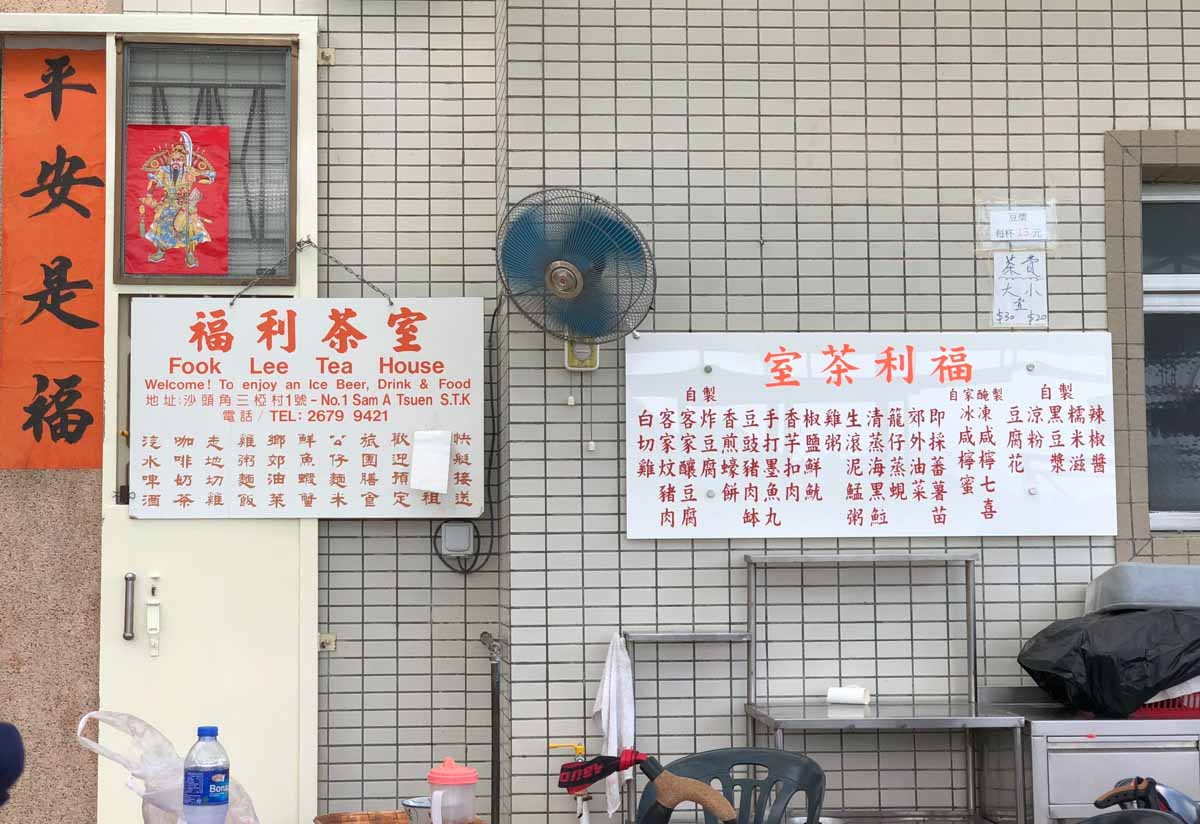 平安是福
福利茶室
Fook Lee Tea House
Welcome! To enjoy an Ice Beer, Drink & Food
地址:沙頭角三椏村1號-No.1 Sam A Tsuen S.T.K
電話/TEL: 2679 9421
汽水啤酒
咖啡奶茶
走地切雞
雞粥麵飯
鄉郊油菜
鮮魚蝦蟹
公仔麵米
旅團膳食
歡迎預定
租
快艇接送
豆漿
每杯 13 元
茶
大 小
$30 $20
福利茶室
自製
辣椒醬
糯米滋
黑豆漿
涼粉
豆腐花
自家醃製
凍咸檸七喜
冰咸檸蜜
即採蕃薯苗
郊外油菜
籠仔蒸蜆
清蒸海黑
生滾泥鯭粥
雞粥
椒鹽鮮魷
香芋扣肉
手打墨魚丸
豆豉豬肉缽
香煎蠔餅
自製
炸豆腐
客家釀豆腐
客家炆豬肉
白切雞
Bona